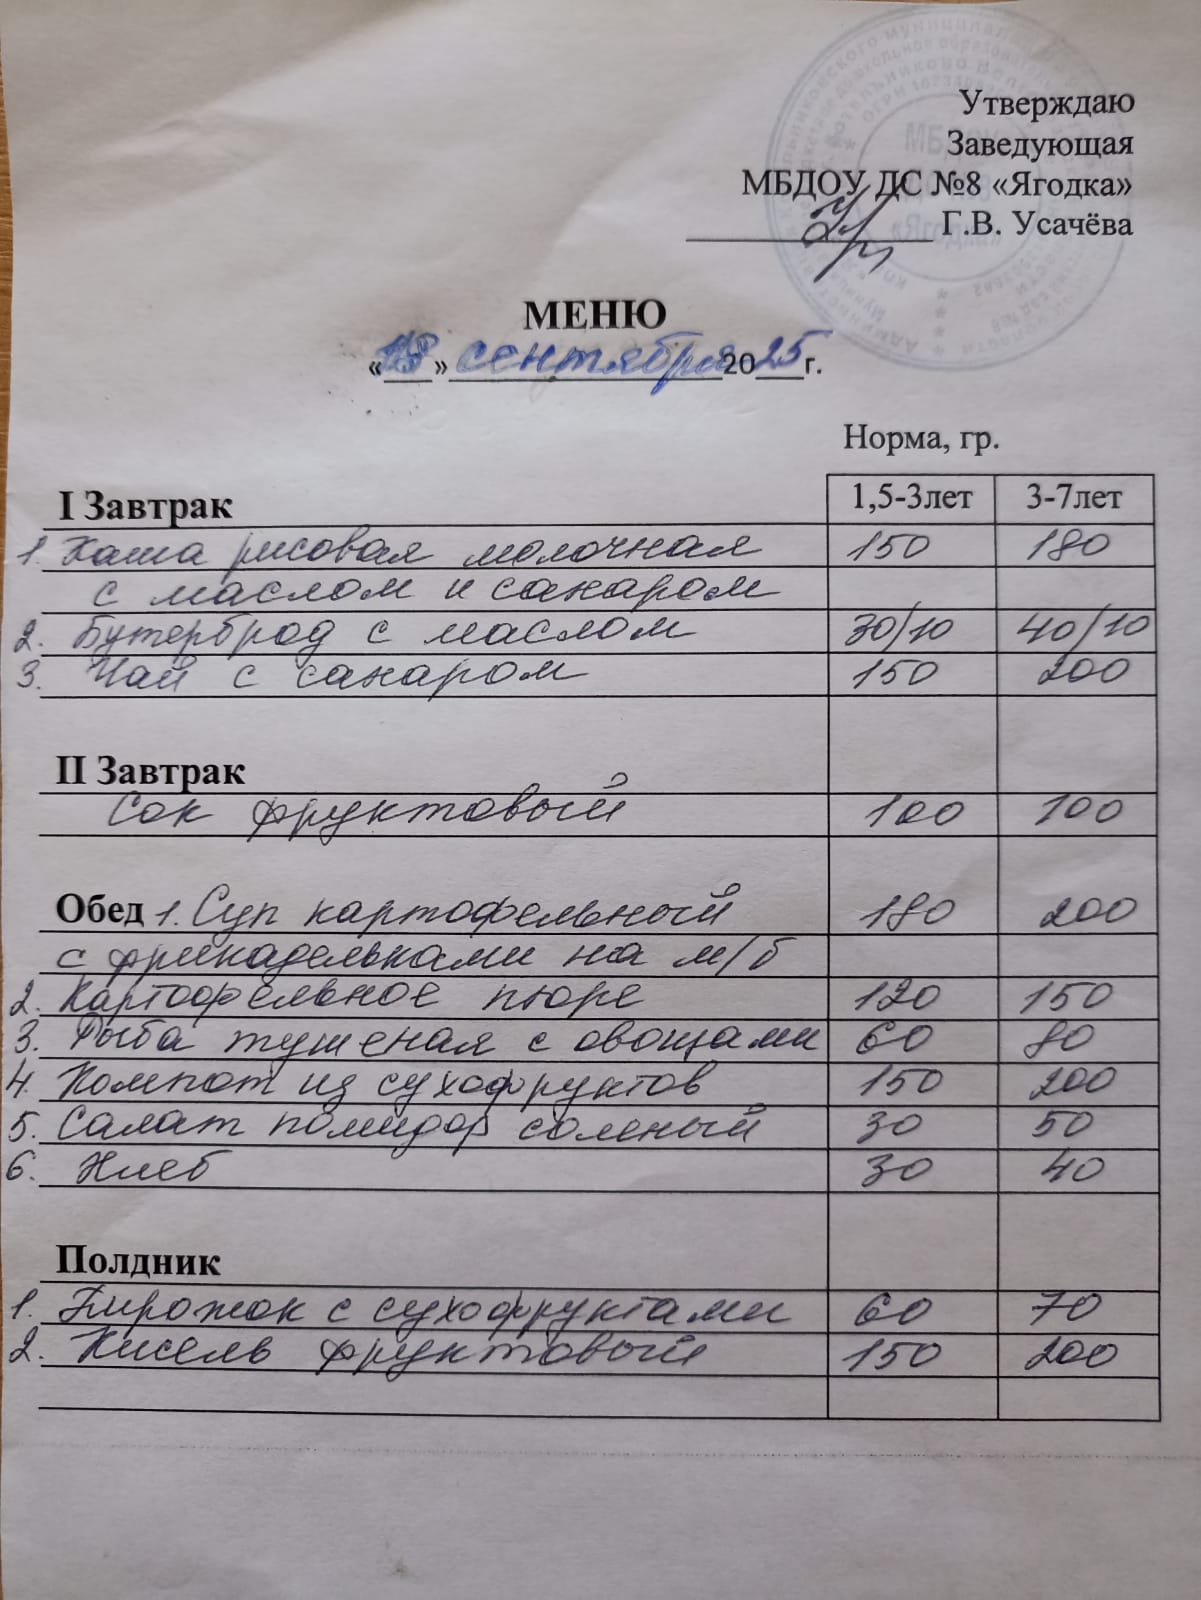 Утверждаю
Заведующая
МБДОУ ДС №8 «Ягодка»
Г.В. Усачёва
МЕНЮ
«18» сентября 2025 г.
Норма, гр.
I Завтрак 1,5-3лет 3-7лет
1. Каша рисовая молочная 150 180
с маслом и сахаром
2. Бутерброд с маслом 30/10 40/10
3. Чай с сахаром 150 200
II Завтрак
Сок фруктовый 100 100
Обед 1. Суп картофельный 180 200
с фрикадельками на м/б
2. Картофельное пюре 120 150
3. Рыба тушеная с овощами 60 80
4. Компот из сухофруктов 150 200
5. Салат помидор соленый 30 50
6. Хлеб 30 40
Полдник
1. Пирожок с сухофруктами 60 70
2. Кисель фруктовый 150 200